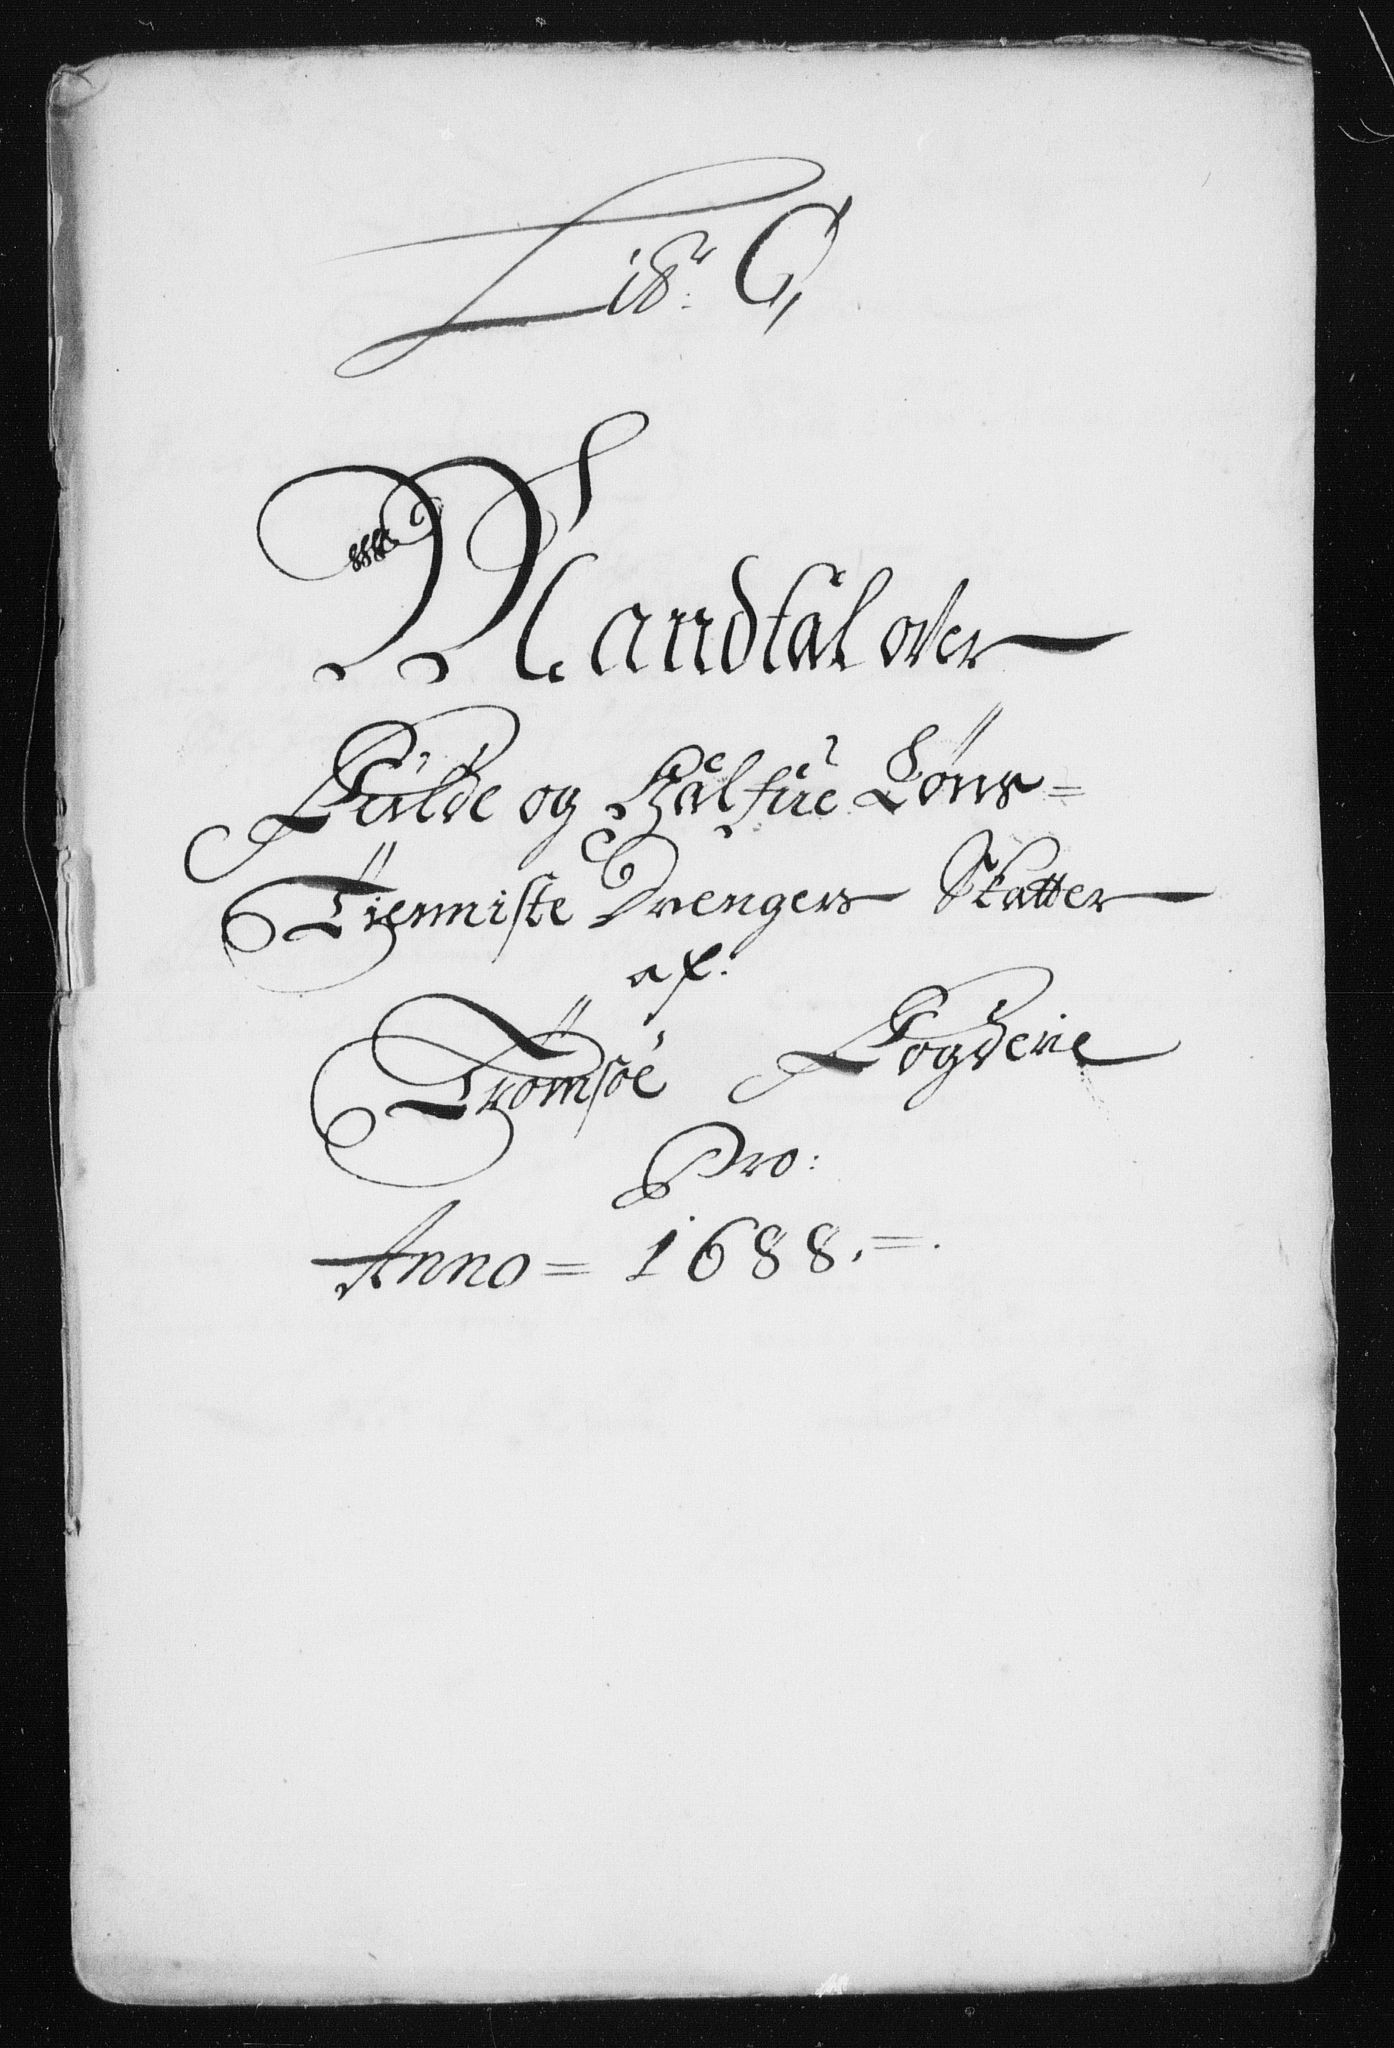 Mandtal over
Fulde og Halfue Løns=
Tienniste Drengers Skatter
af:
Tromsøe Fogderie
Pro:
Anno = 1688. =.